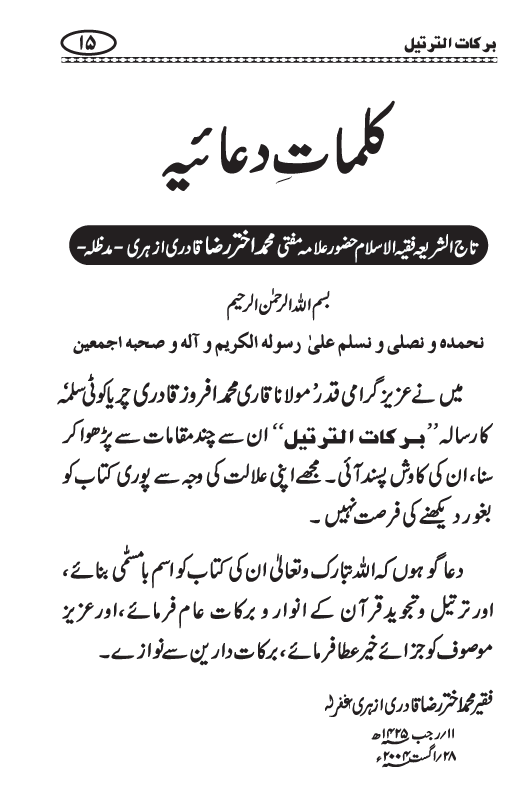 بركات الترتيل
۱۵
کلماتِ دعائیہ
تاج الشریعہ فقیہ الاسلام حضور علامہ مفتی محمد اختر رضا قادری ازہری - مدظلہ -
بسم اللہ الرحمٰن الرحیم
نحمدہ و نصلی و نسلم علیٰ رسولہ الکریم و آلہ و صحبہ اجمعین
میں نے عزیز گرامی قدر مولانا قاری محمد افروز قادری چریاکوٹی سلمہٗ
کا رسالہ ”بركات الترتيل“ ان سے چند مقامات سے پڑھوا کر
سنا، ان کی کاوش پسند آئی۔ مجھے اپنی علالت کی وجہ سے پوری کتاب کو
بغور دیکھنے کی فرصت نہیں ۔
دعا گو ہوں کہ اللہ تبارک وتعالیٰ ان کی کتاب کو اسم با مسمّٰی بنائے ،
اور ترتیل و تجوید قرآن کے انوار و برکات عام فرمائے ، اور عزیز
موصوف کو جزائے خیر عطا فرمائے ، برکات دارین سے نوازے۔
فقیر محمد اختر رضا قادری ازہری غفرلہ
۱۱/رجب ۱۴۲۵ھ
۲۸/اگست ۲۰۰۴ء